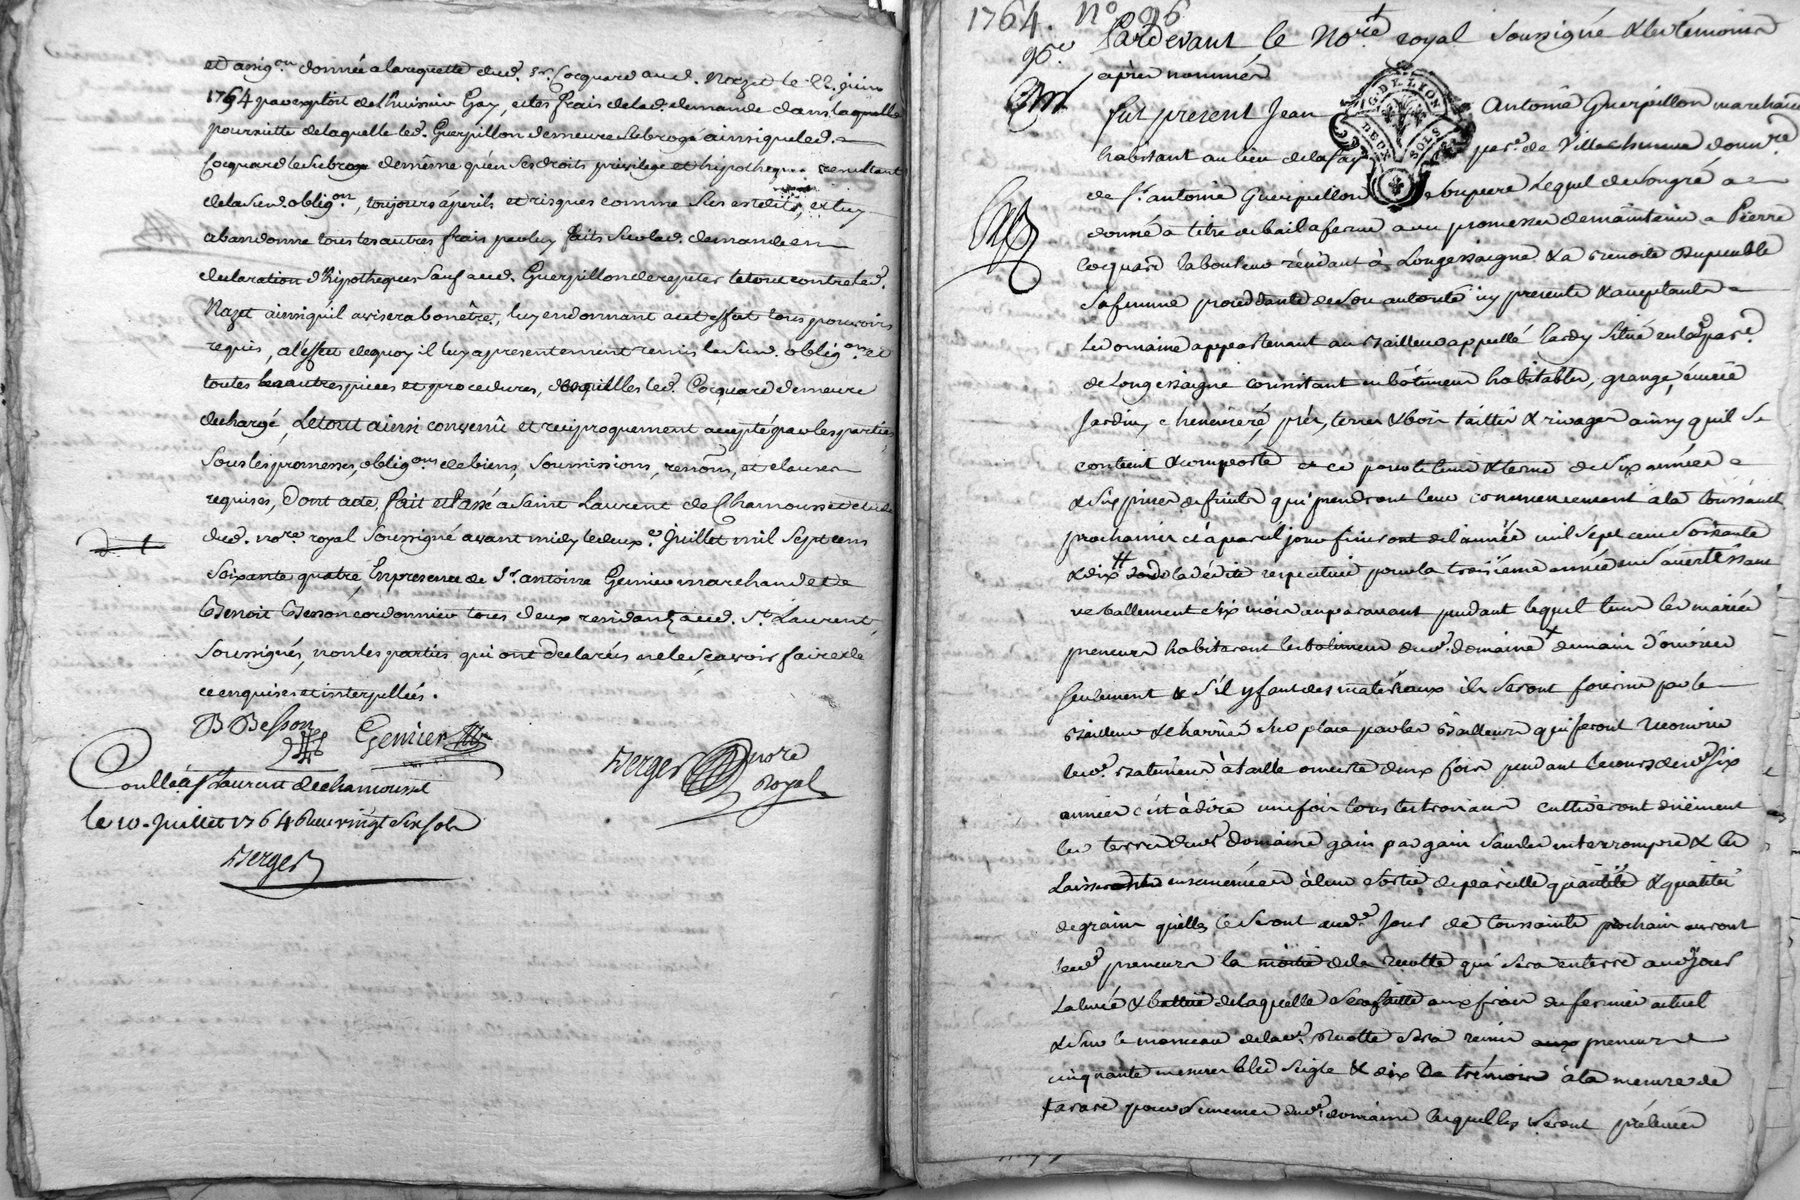 et assig.on donnée a la requette dud. Sr. Cocquard aud. Nazet le 22. juin
1764 par exploit de l'huissier Gay, et les frais de lad. demande dans laquelle
poursuitte de laquelle led. Guerpillon demeure subrogé ainsi que led.
Cocquard le subroge de même qu'en ses droits privilege et hypotheque resultant
de la susd. oblig.on, toujours à perils et risques comme sus est dit, et luy
abandonne tous les autres frais par luy faits sur lad. demande en
declaration d'hipotheques sauf aud. Guerpillon de repeter le tout contre led.
Nazet ainsi qu'il avisera bon être, luy en donnant a cet effet tous pouvoirs
requis, a l'effet de quoy il luy a presentement remis la susd. oblig.on et
toutes les autres pieces et procedures, desquelles led. Cocquard demeure
dechargé, Le tout ainsi convenû et reciproquement accepté par les parties,
sous les promesses, oblig.ons de biens, soumissions, renon.ons, et clauses
requises, Dont acte, fait et Passé a Saint Laurent de Chamousset etude
dud. no.re royal soussigné avant midy le deux.e Juillet mil sept cens
soixante quatre, En presence de Sr. antoine Genier marchand et de
Benoit Besson cordonnier tous deux residants aud. St. Laurent,
soussignés, non les parties qui ont declarées ne le sçavoir faire de
ce enquises et interpellées.
B Besson Genier
Berger no.re
royal
Conllé à St Laurent de chamousset
le 10. Juillet 1764 6 leu vingt six sols
Berger
1764. No. 96
96.e Pardevant le No.re royal soussigné & les témoins
après nommés
G. DE LION
DEUX SOLS
fut present Jean Antoine Guerpillon marchand
habitant au lieu de la fay par.e de Villecheneve
de Sr. antoine Guerpillon son pere lequel de son gré a
donné a titre de bail a ferme avec promesse de maintenir a Pierre
Cocquard laboureur résidant à Longessaigne & a benoite
sa femme procedante de son autorité icy presente & acceptante
Le domaine appartenant au bailleur appellé hardy situé en lad. par.e
de Longessaigne consistant en bâtiment habitable, grange, écurie
Jardin, cheneviere, prés, terres & bois taillis & rivages ainsy qu'il se
contient & comporte et ce pour le tems & terme de six années
& six prises de fruits qui prendront leur commencement à la toussaint
prochaine et à pareil jour finiront de l'année mil sept cens soixante
& dix sous la dédite respective pour la troisième année en s'avertissant
verballement six mois auparavant pendant lequel tems les mariés
preneurs habiteront les batimens dud. domaine
seulement & s'il y faut des matériaux ils seront fournis par le
bailleur & charriés sur place par les bailleurs qui feront recouvrir
led. batimens à taille ouverte deux fois pendant le cours desd. six
années c'est à dire une fois tous les trois ans cultiveront duement
les terres dud. domaine gain par gain sans les interrompre & les
Laisseront ensemencées à leur sortie de pareille quantité & qualité
de grains quelles le seront aud. Jour de toussaints prochain auront
lesd. preneurs la moitié de la recolte qui sera en terre aud. jour
La levée & battue de laquelle sera faitte aux frais du fermier actuel
& sur le monceau de lad. recolte sera remis aux preneurs
cinquante mesures bled seigle & dix De trémois à la mesure de
tarare pour semence dud. domaine lesquelles seront prélevées